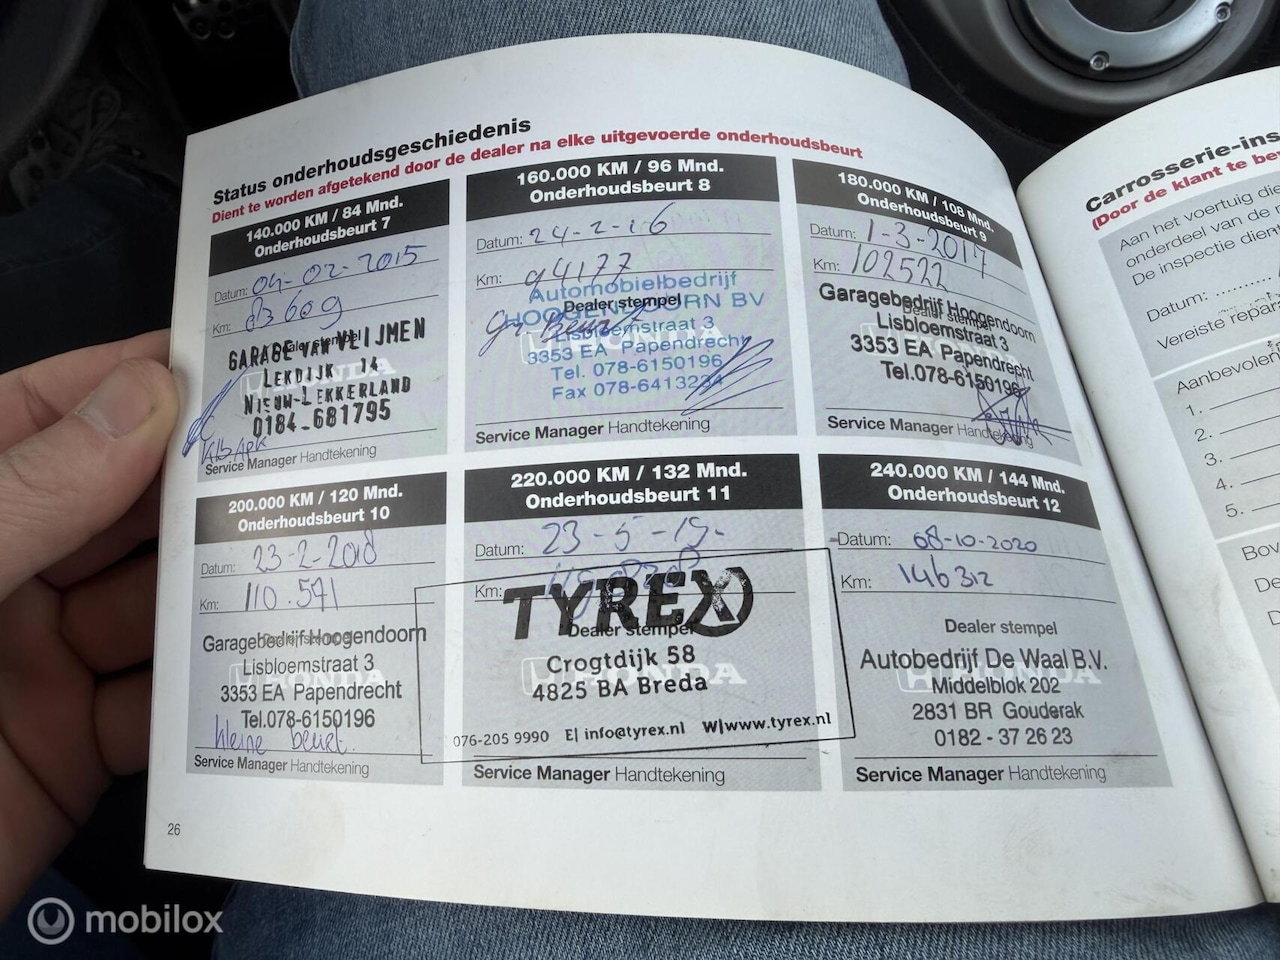 Status onderhoudsgeschiedenis
Dient te worden afgetekend door de dealer na elke uitgevoerde onderhoudsbeurt
140.000 KM / 84 Mnd.
Onderhoudsbeurt 7
Datum: 04-02-2015
Km:
Dealer stempel
GARAGE VAN VLIJMEN
LEKDIJK 14
NIEUW-LEKKERLAND
0184-681795
HONDA
Service Manager Handtekening
160.000 KM / 96 Mnd.
Onderhoudsbeurt 8
Datum: 24-2-16
Km: 94177
Automobielbedrijf
Dealer stempel
HOOGENDOORN BV
Lisbloemstraat 3
3353 EA Papendrecht
Tel. 078-6150196
Fax 078-6413234
Service Manager Handtekening
180.000 KM / 108 Mnd.
Onderhoudsbeurt 9
Datum: 1-3-2017
Km: 102522
Garagebedrijf Hoogendoorn
Dealer stempel
Lisbloemstraat 3
3353 EA Papendrecht
Tel.078-6150196
Service Manager Handtekening
200.000 KM / 120 Mnd.
Onderhoudsbeurt 10
Datum: 23-2-2018
Km: 110.571
Garagebedrijf Hoogendoorn
Dealer stempel
Lisbloemstraat 3
3353 EA Papendrecht
Tel.078-6150196
kleine beurt.
Service Manager Handtekening
220.000 KM / 132 Mnd.
Onderhoudsbeurt 11
Datum: 23-5-19-
Km:
TYREX
Dealer stempel
Crogtdijk 58
4825 BA Breda
HONDA
076-205 9990 E| info@tyrex.nl W|www.tyrex.nl
Service Manager Handtekening
240.000 KM / 144 Mnd.
Onderhoudsbeurt 12
Datum: 08-10-2020
Km: 146312
Dealer stempel
Autobedrijf De Waal B.V.
HONDA
Middelblok 202
2831 BR Gouderak
0182 - 37 26 23
Service Manager Handtekening
26
Carrosserie-ins
(Door de klant te be
Aan het voertuig die
onderdeel van de
De inspectie dien
Datum:
Vereiste repar
Aanbevolen
1.
2.
3.
4.
5.
Bov
De
D
mobilox